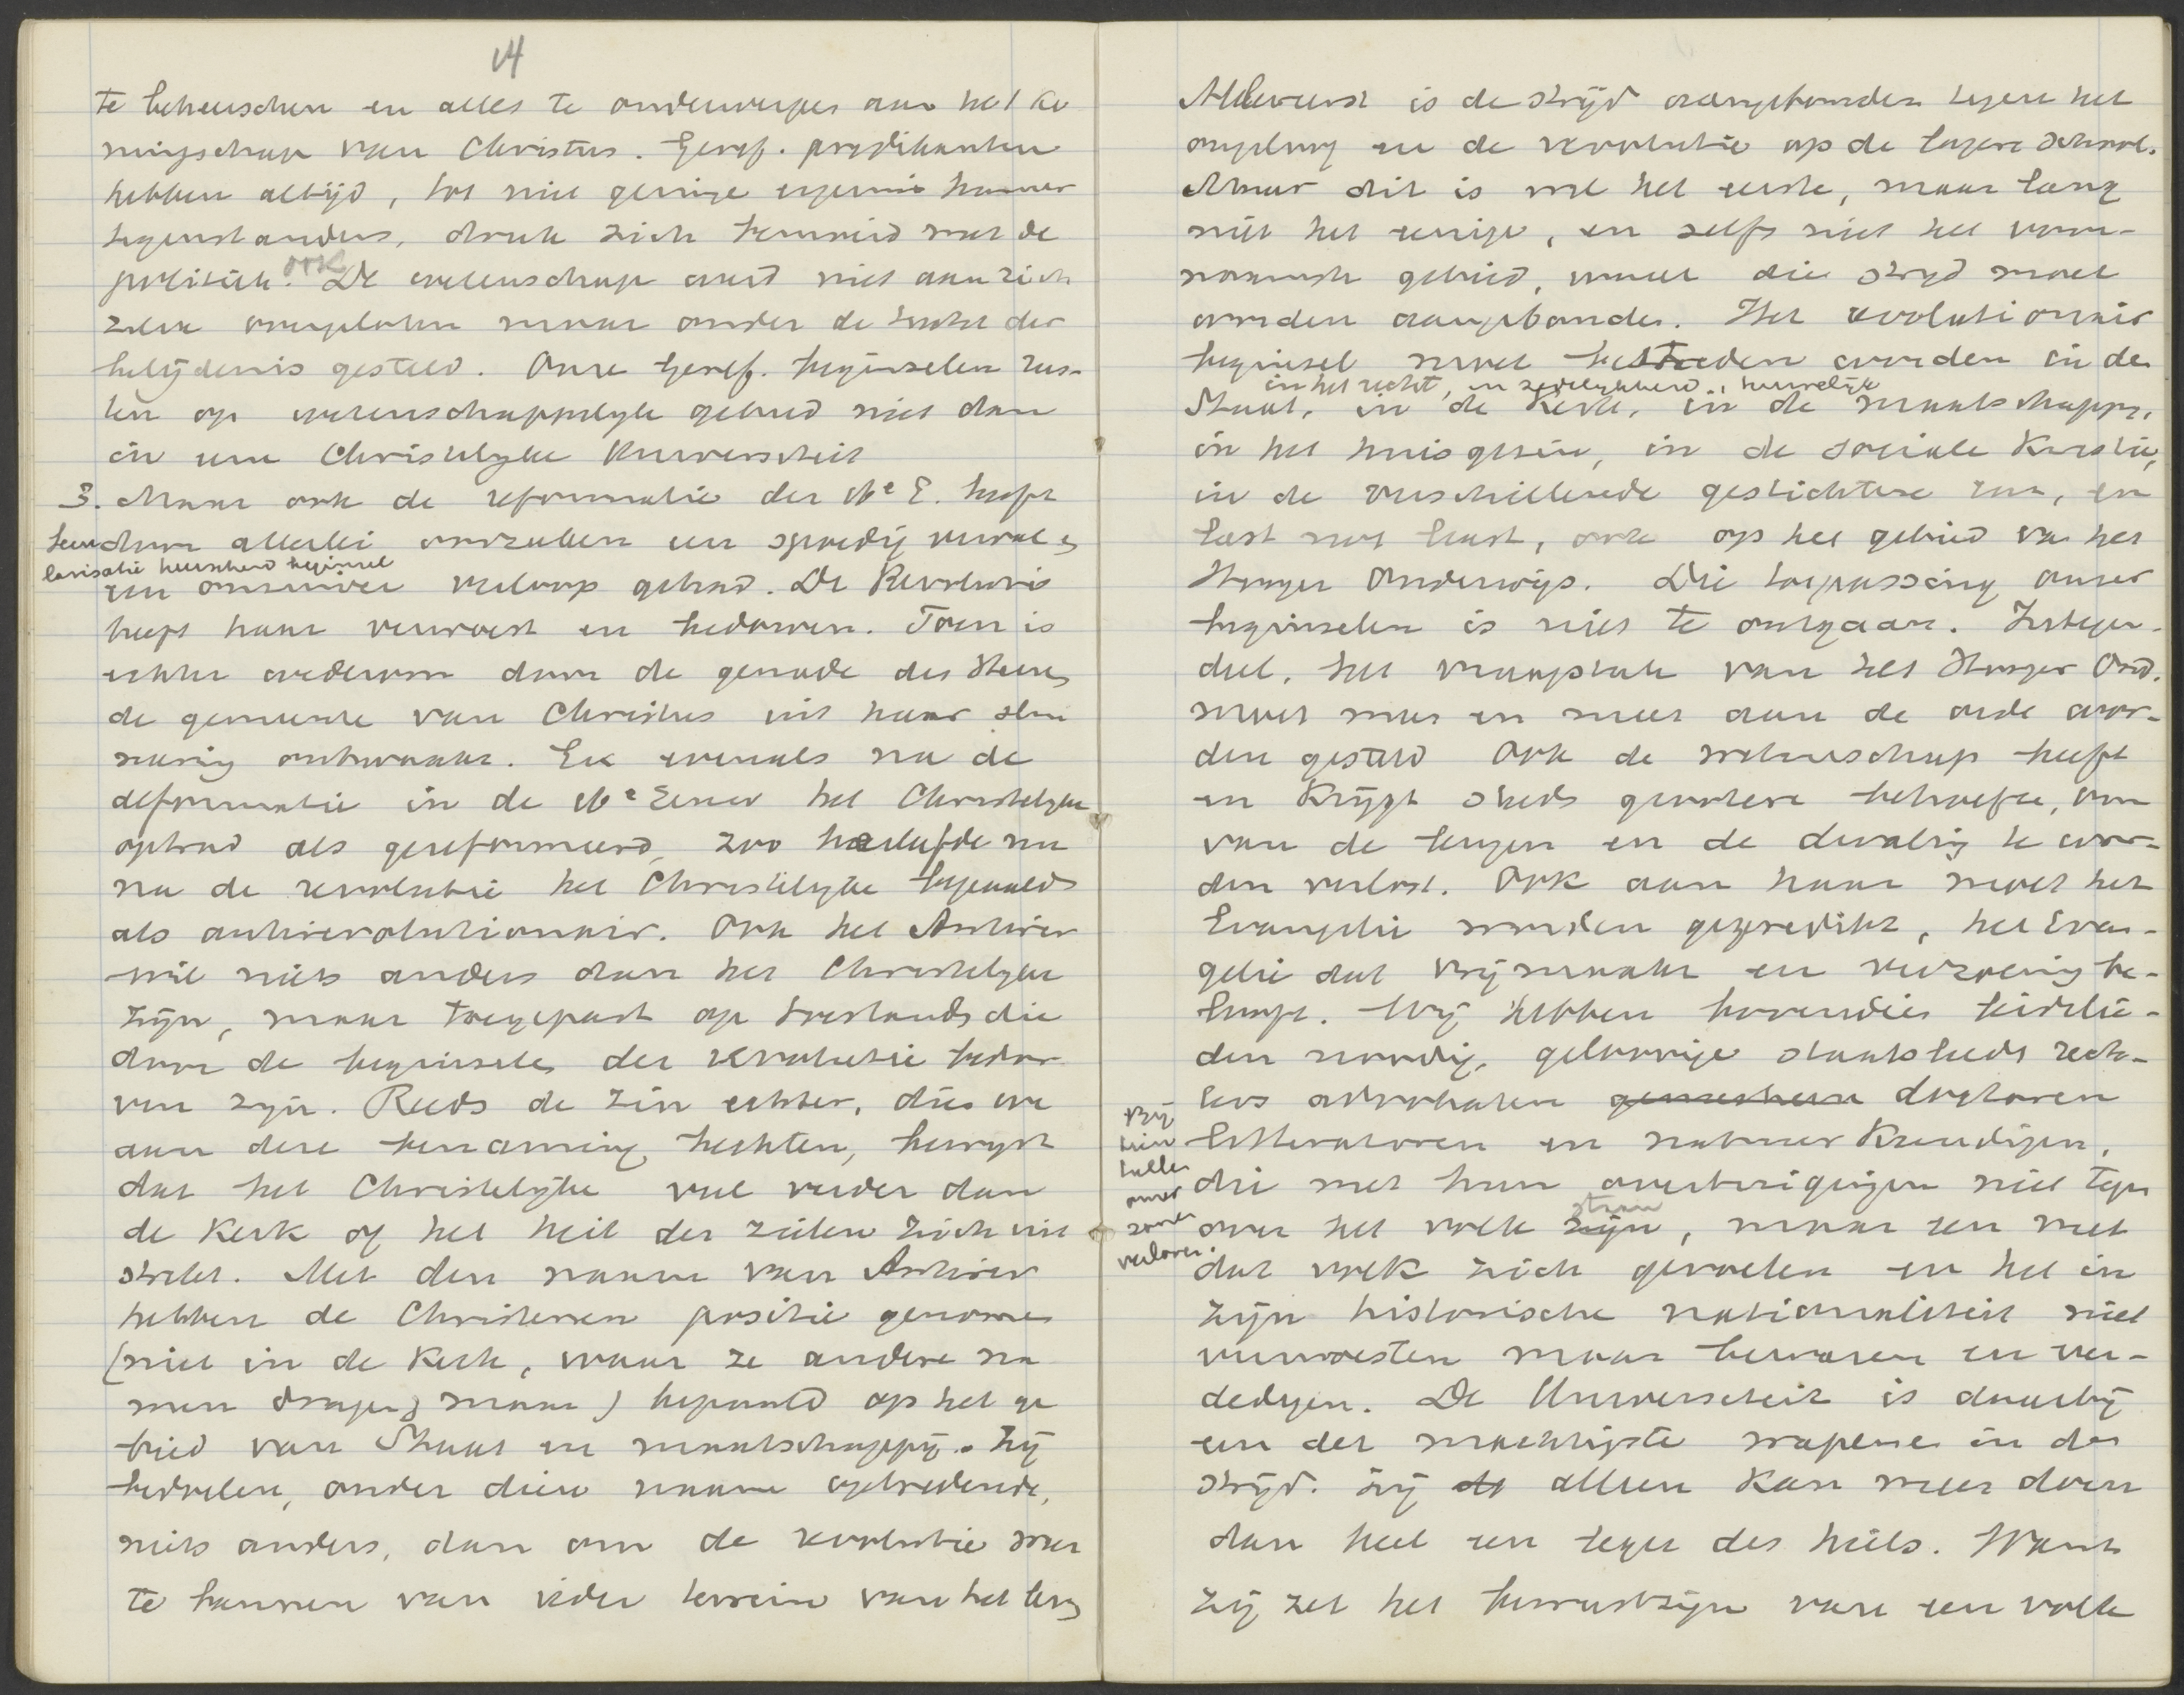 14
te beheerschen en alles te onderwerpen aan het ko
ningschap van Christus. Geref. predikanten
hebben altijd, tot niet geringe ergernis hunner
tegenstanders, druk zich bemoeid met de
politiek. ook De wetenschap werd niet aan zich
zelve overgelaten maar onder de tucht der
belijdenis gesteld. Onze Geref. beginselen rus-
ten op wetenschappelyk gebied niet dan
in eene Christelyke Universiteit
3. Maar ook de reformatie der 16e E. heeft
door allerlei oorzaken een spoedig verval &
een verloop gehad. De Revolutie
heeft haar verwoest en bedorven. Toen is
echter wederom door de genade des Heeren
de gemeente van Christus uit haar slui
mering ontwaakt. En evenals na de
deformatie in de 16e Eeuw het Christelyke
optrad als gereformeerd, zoo herleefde nu
na de revolutie het Christelyke bepaald
als antirevolutionair. Ook het Antirev
wil niets anders dan het Christelyke
zijn, maar toegepast op toestanden die
door de beginselen der revolutie bedor
ven zyn. Reeds de zin echter, dien we
aan deze benaming hechten, bewyst
dat het Christelijke veel verder dan
de Kerk of het heil der zielen zich uit
strekt. Met den naam van Antirev
hebben de Christenen positie genomen
(niet in de Kerk, waar ze andere na
men dragen, maar) bepaald op het ge
bied van Staat en maatschappij. Zij
bedoelen, onder dien naam optredende,
niets anders, dan om de revolutie weer
te bannen van ieder terrein van het leven
larisatie heerschend beginsel
Allereerst is de strijd aangebonden tegen het
ongeloof en de revolutie op de lagere school.
Maar dit is wel het eerste, maar lang
niet het eenige, en zelfs niet het voor-
naamste gebied, waar die stryd moet
worden aangebonden. Het revolutionair
beginsel moet bestreden worden in de
in het recht, in zedelykheid, huwelijk
Staat, in de Kerk, in de maatschappy,
in het huisgezin, in de sociale Kwestie,
in de verschillende gestichten enz, en
last not least, ook op het gebied van het
Hooger Onderwijs. Die toepassing onzer
beginselen is niet te ontgaan. Integen-
deel, het vraagstuk van het Hooger Ond.
moet meer en meer aan de orde wor-
den gesteld Ook de wetenschap heeft
en krijgt steeds grootere behoefte, om
van de leugen en de dwaling te wor-
den verlost. Ook aan haar moet het
Evangelie worden gepredikt, het Evan-
gelie dat vrijmaakt en verzoening be-
looft. Wij hebben bovendien leidslie-
den noodig, geloovige staatslieden rech-
ters advokaten doctoren
litteratoren en natuurkundigen,
die met hun overtuigingen niet tegen
over het volk zijn staan, maar een met
dat volk zich gevoelen en het in
zijn historische nationaliteit niet
verwoesten maar bewaren en ver-
dedigen. De Universiteit is daarbij
een der machtigste wapenen in den
strijd. Zij alleen kan meer doen
dan heel een leger des heils. Want
zij zet het bewustzijn van een volk
Bij
tien
tallen
onzer
zonen
verloren.